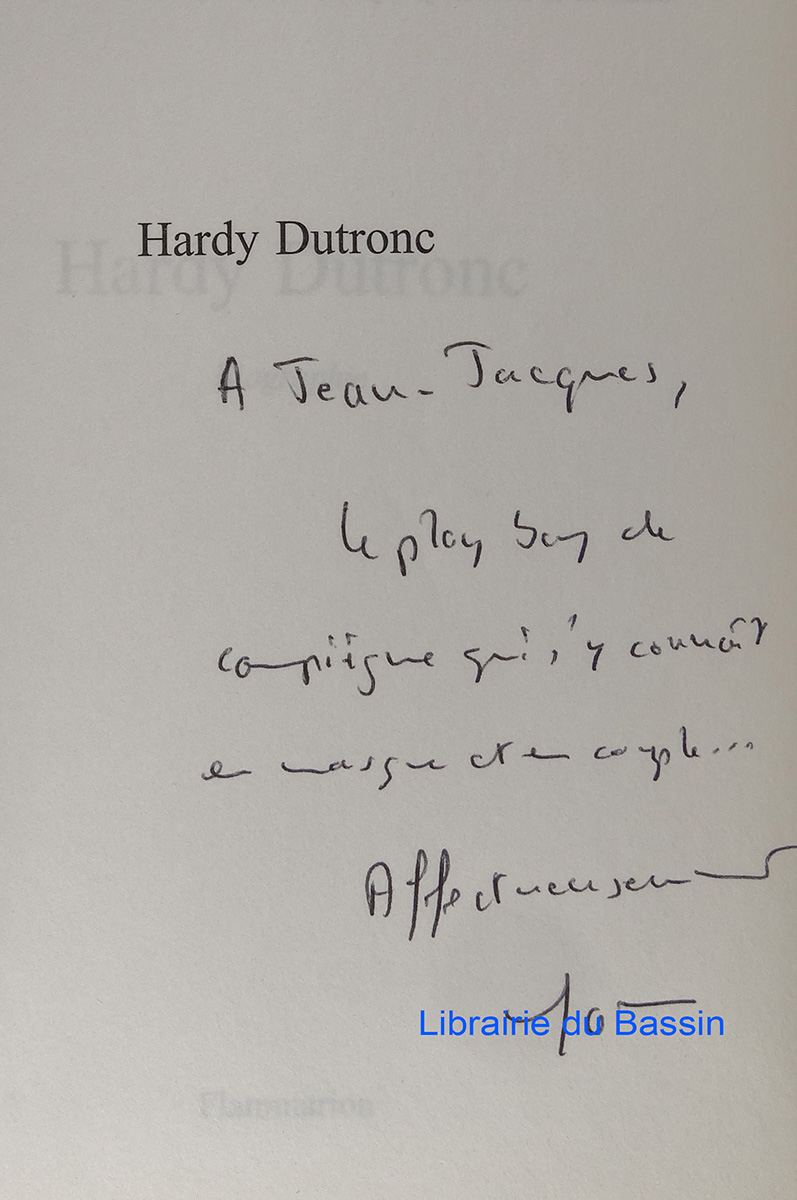 Hardy Dutronc
A Jean-Jacques,
le play boy de
compiègne qui s'y connaît
en masque et en couple...
Affectueusement
Librairie du Bassin
Flammarion